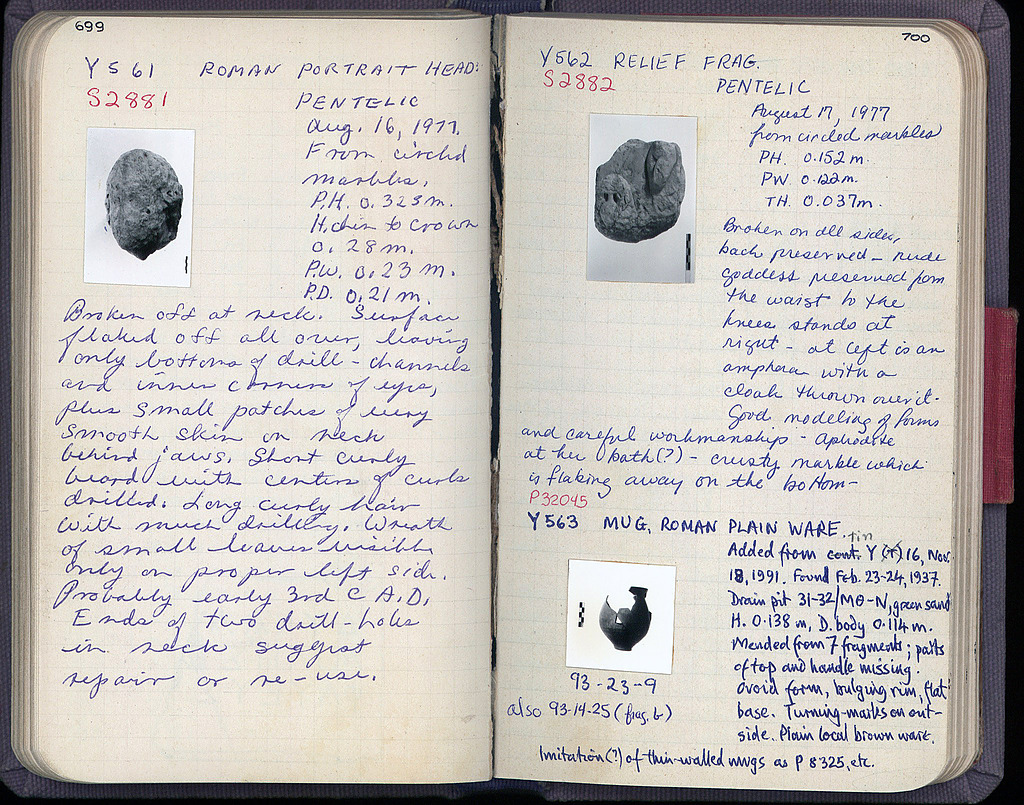 699
Y 561 ROMAN PORTRAIT HEAD:
S2881
PENTELIC
Aug. 16, 1977.
From circled
marbles.
P.H. 0.323 m.
H. chin to crown
0.28 m.
P.W. 0.23 m.
P.D. 0.21 m.
Broken off at neck. Surface
flaked off all over, leaving
only bottoms of drill-channels
and inner corners of eyes,
plus small patches of very
smooth skin on neck
behind jaws. Short curly
beard with centers of curls
drilled. Long curly hair
with much drilling. Wreath
of small leaves visible
only on proper left side.
Probably early 3rd C A.D.
Ends of two drill-holes
in neck suggest
repair or re-use.
700
Y562 RELIEF FRAG.
S2882
PENTELIC
August 17, 1977
from circled marbles
PH. 0.152 m.
PW 0.122m.
TH. 0.037m.
Broken on all sides,
back preserved – nude
goddess preserved from
the waist to the
knees stands at
right – at left is an
amphora with a
cloak thrown over it.
Good modeling of forms
and careful workmanship – Aphrodite
at her bath(?) – crusty marble which
is flaking away on the bottom –
P32045
Y563 MUG, ROMAN PLAIN WARE.
tin
Added from cont. Y 16, Nov.
18, 1991. Found Feb. 23-24, 1937.
Drain pit 31-32/ΜΘ-Ν, green sand
H. 0.138 m, D. body 0.114 m.
Mended from 7 fragments; parts
of top and handle missing.
Ovoid form, bulging rim, flat
base. Turning-marks on out-
side. Plain local brown ware.
93-23-9
also 93-14-25 (frag. b)
Imitation(?) of thin-walled mugs as P 8325, etc.